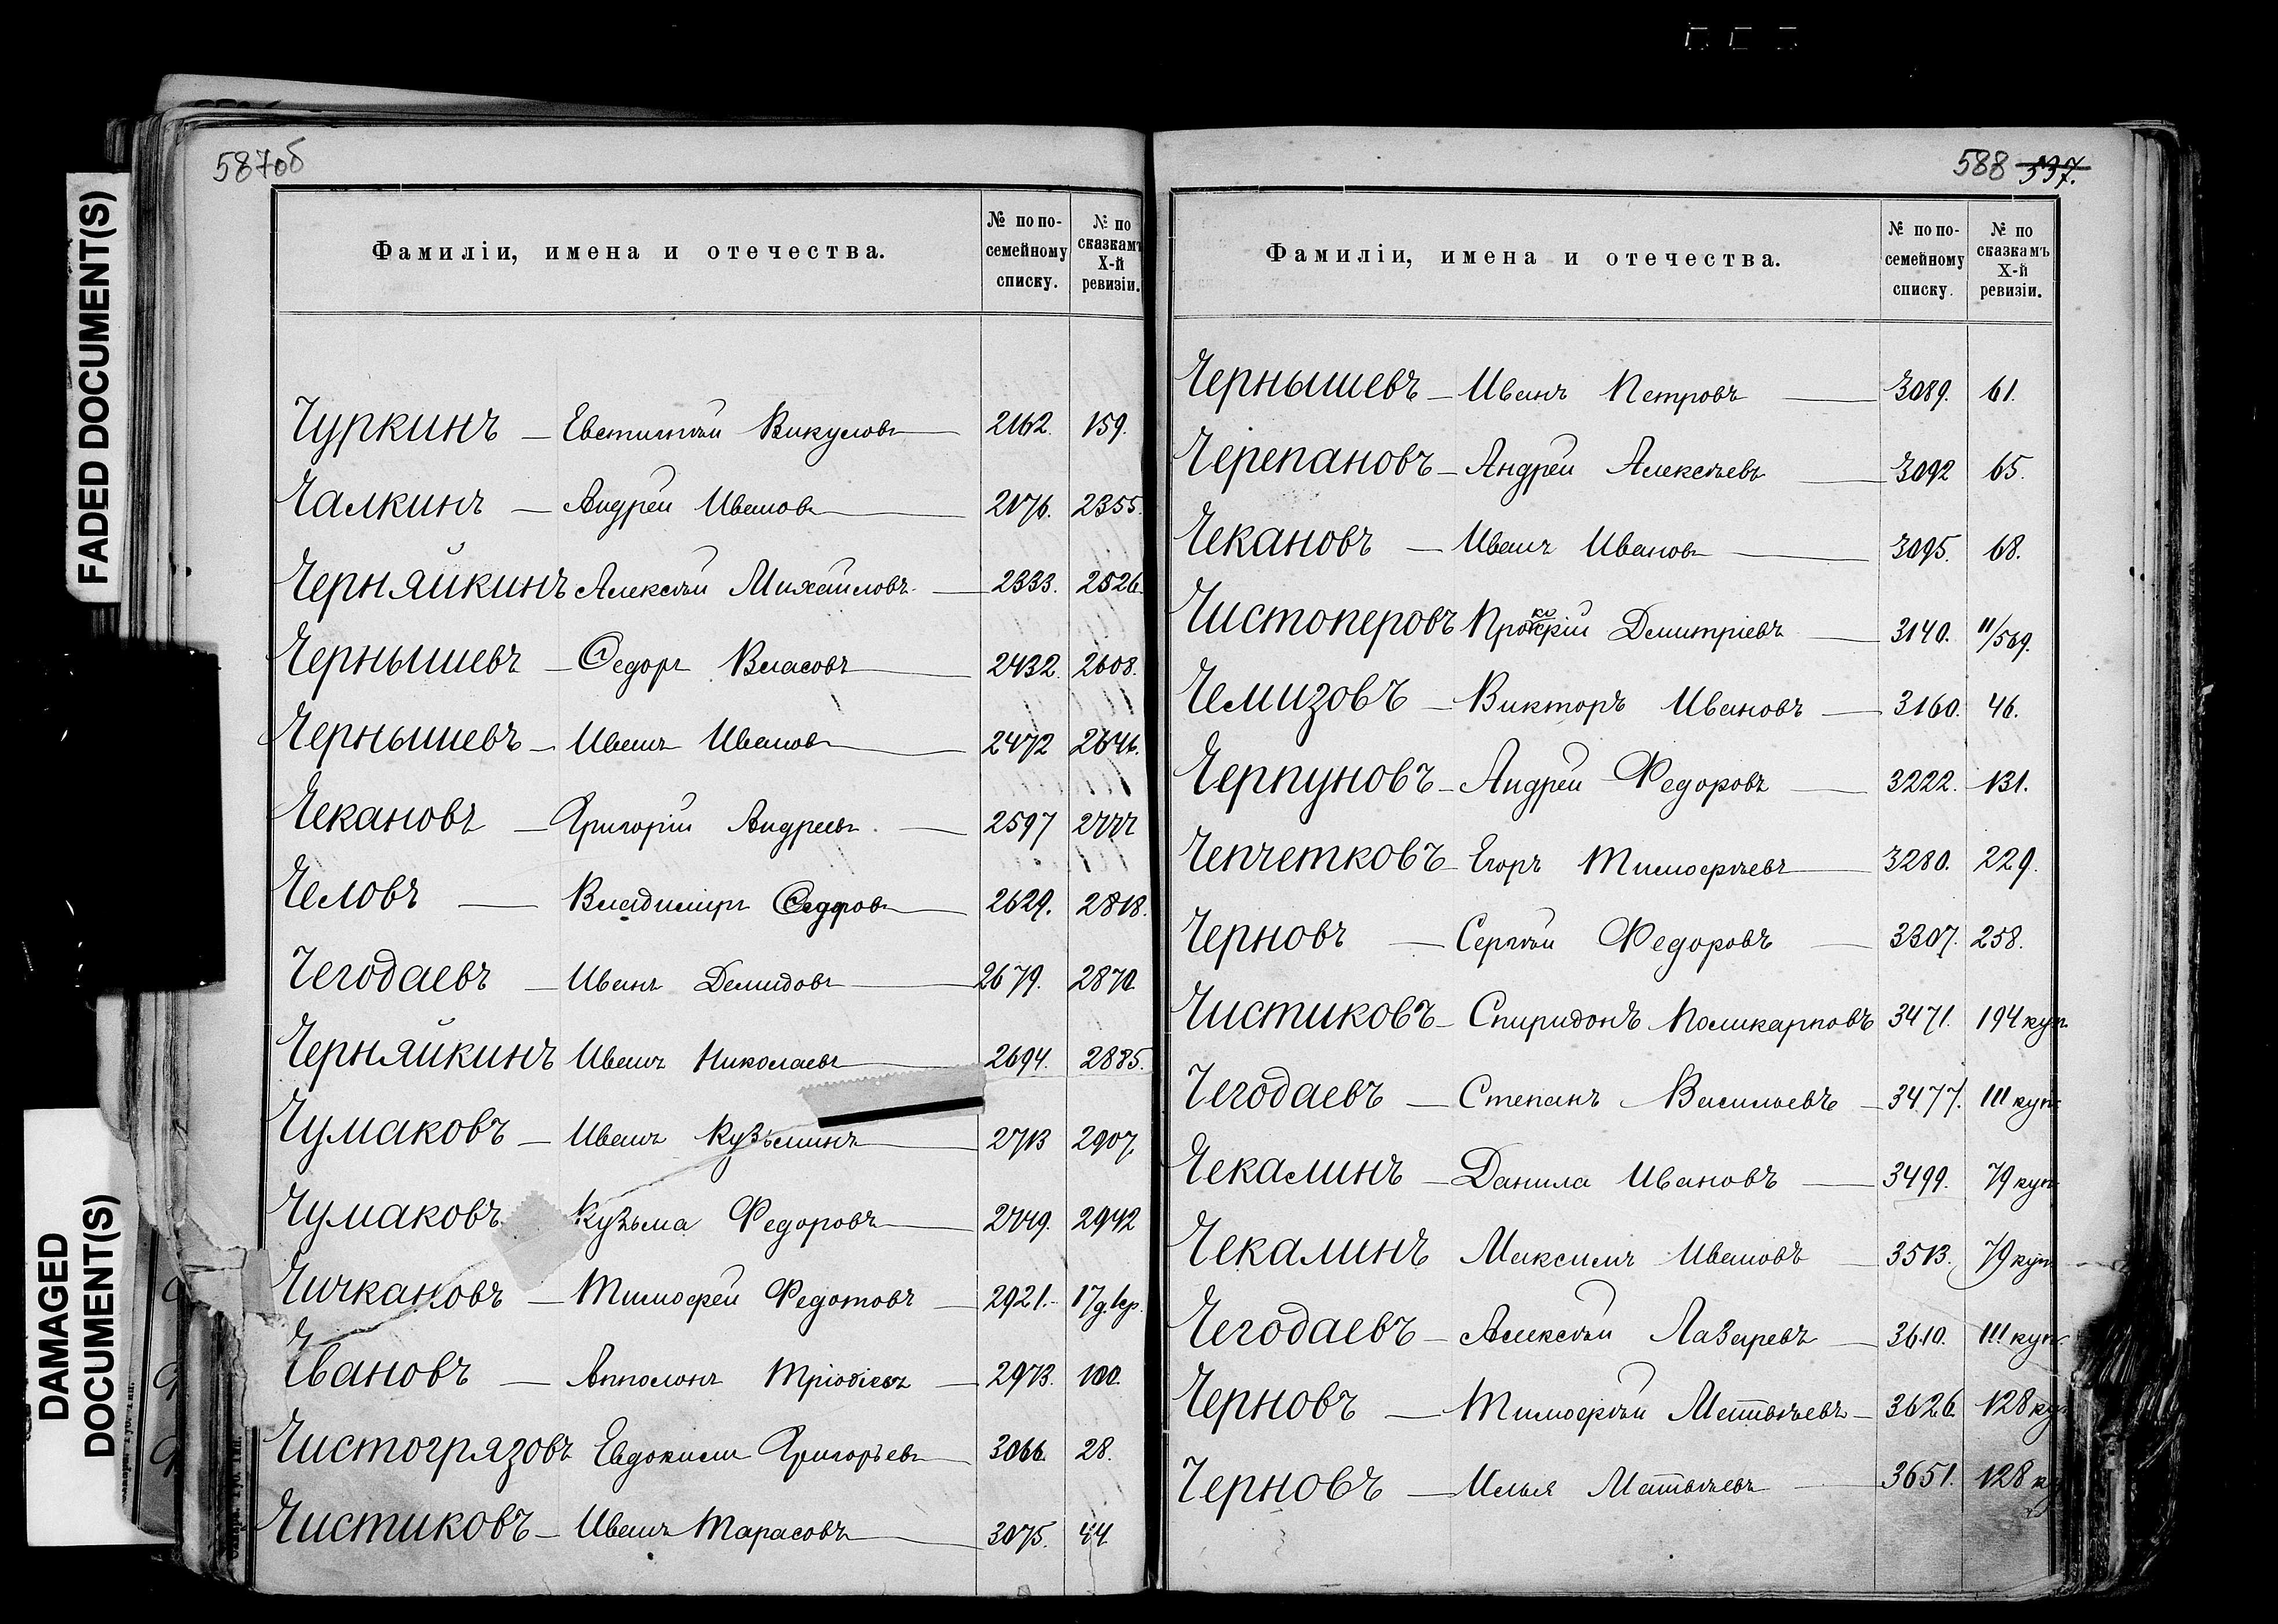 FADED DOCUMENT(S)
DAMAGED
DOCUMENT(S)
587об
Фамиліи, имена и отечества.
№ по по-
семейному
списку.
№ по
сказкамъ
X-й
ревизіи.
Чуркинъ — Евстигнѣй Викуловъ — 2162. 159.
Чалкинъ — Андрей Ивановъ — 2176. 2355.
Черняйкинъ Алексѣй Михайловъ — 2333. 2526.
Чернышевъ — Ѳедоръ Власовъ — 2432. 2608.
Чернышевъ — Иванъ Ивановъ — 2472 2646.
Чекановъ — Григорій Андреевъ — 2597 2777
Человъ — Владимиръ Ѳедоровъ — 2629. 2818.
Чегодаевъ — Иванъ Демидовъ — 2679. 2870.
Черняйкинъ Иванъ Николаевъ — 2694. 2885.
Чумаковъ — Иванъ Кузьминъ — 2713 2907.
Чумаковъ Кузьма Федоровъ — 2749. 2942
Чичкановъ — Тимофей Федотовъ — 2921. 17
Чвановъ — Апполонъ — 2973. 100.
Чистогрязовъ Евдокимъ Григорьевъ — 3066. 28.
Чистиковъ — Иванъ Тарасовъ — 3075. 44
588 537.
Фамиліи, имена и отечества.
№ по по-
семейному
списку.
№ по
сказкамъ
X-й
ревизіи.
Чернышевъ — Иванъ Петровъ — 3089. 61.
Черепановъ — Андрей Алексѣевъ — 3092 65.
Чекановъ — Иванъ Ивановъ — 3095. 68.
Чистоперовъ Димитріевъ — 3140. 11/569.
Чемизовъ — Викторъ Ивановъ — 3160. 46.
Черпуновъ — Андрей Федоровъ — 3222. 131.
Чепчетковъ — Егоръ Тимофѣевъ — 3280. 229.
Черновъ — Сергѣй Федоровъ — 3307. 258.
Чистиковъ — Спиридонъ Поликарповъ 3471. 194 куп.
Чегодаевъ — Степанъ Васильевъ — 3477. 111 куп.
Чекалинъ — Данила Ивановъ — 3499. 79 куп.
Чекалинъ Максимъ Ивановъ — 3513. 79 куп.
Чегодаевъ — Алексѣй Лазаревъ — 3610. 111 куп.
Черновъ — Тимофѣй Матвѣевъ — 3626. 128 ку
Черновъ — Илья Матвѣевъ — 3651. 128 к